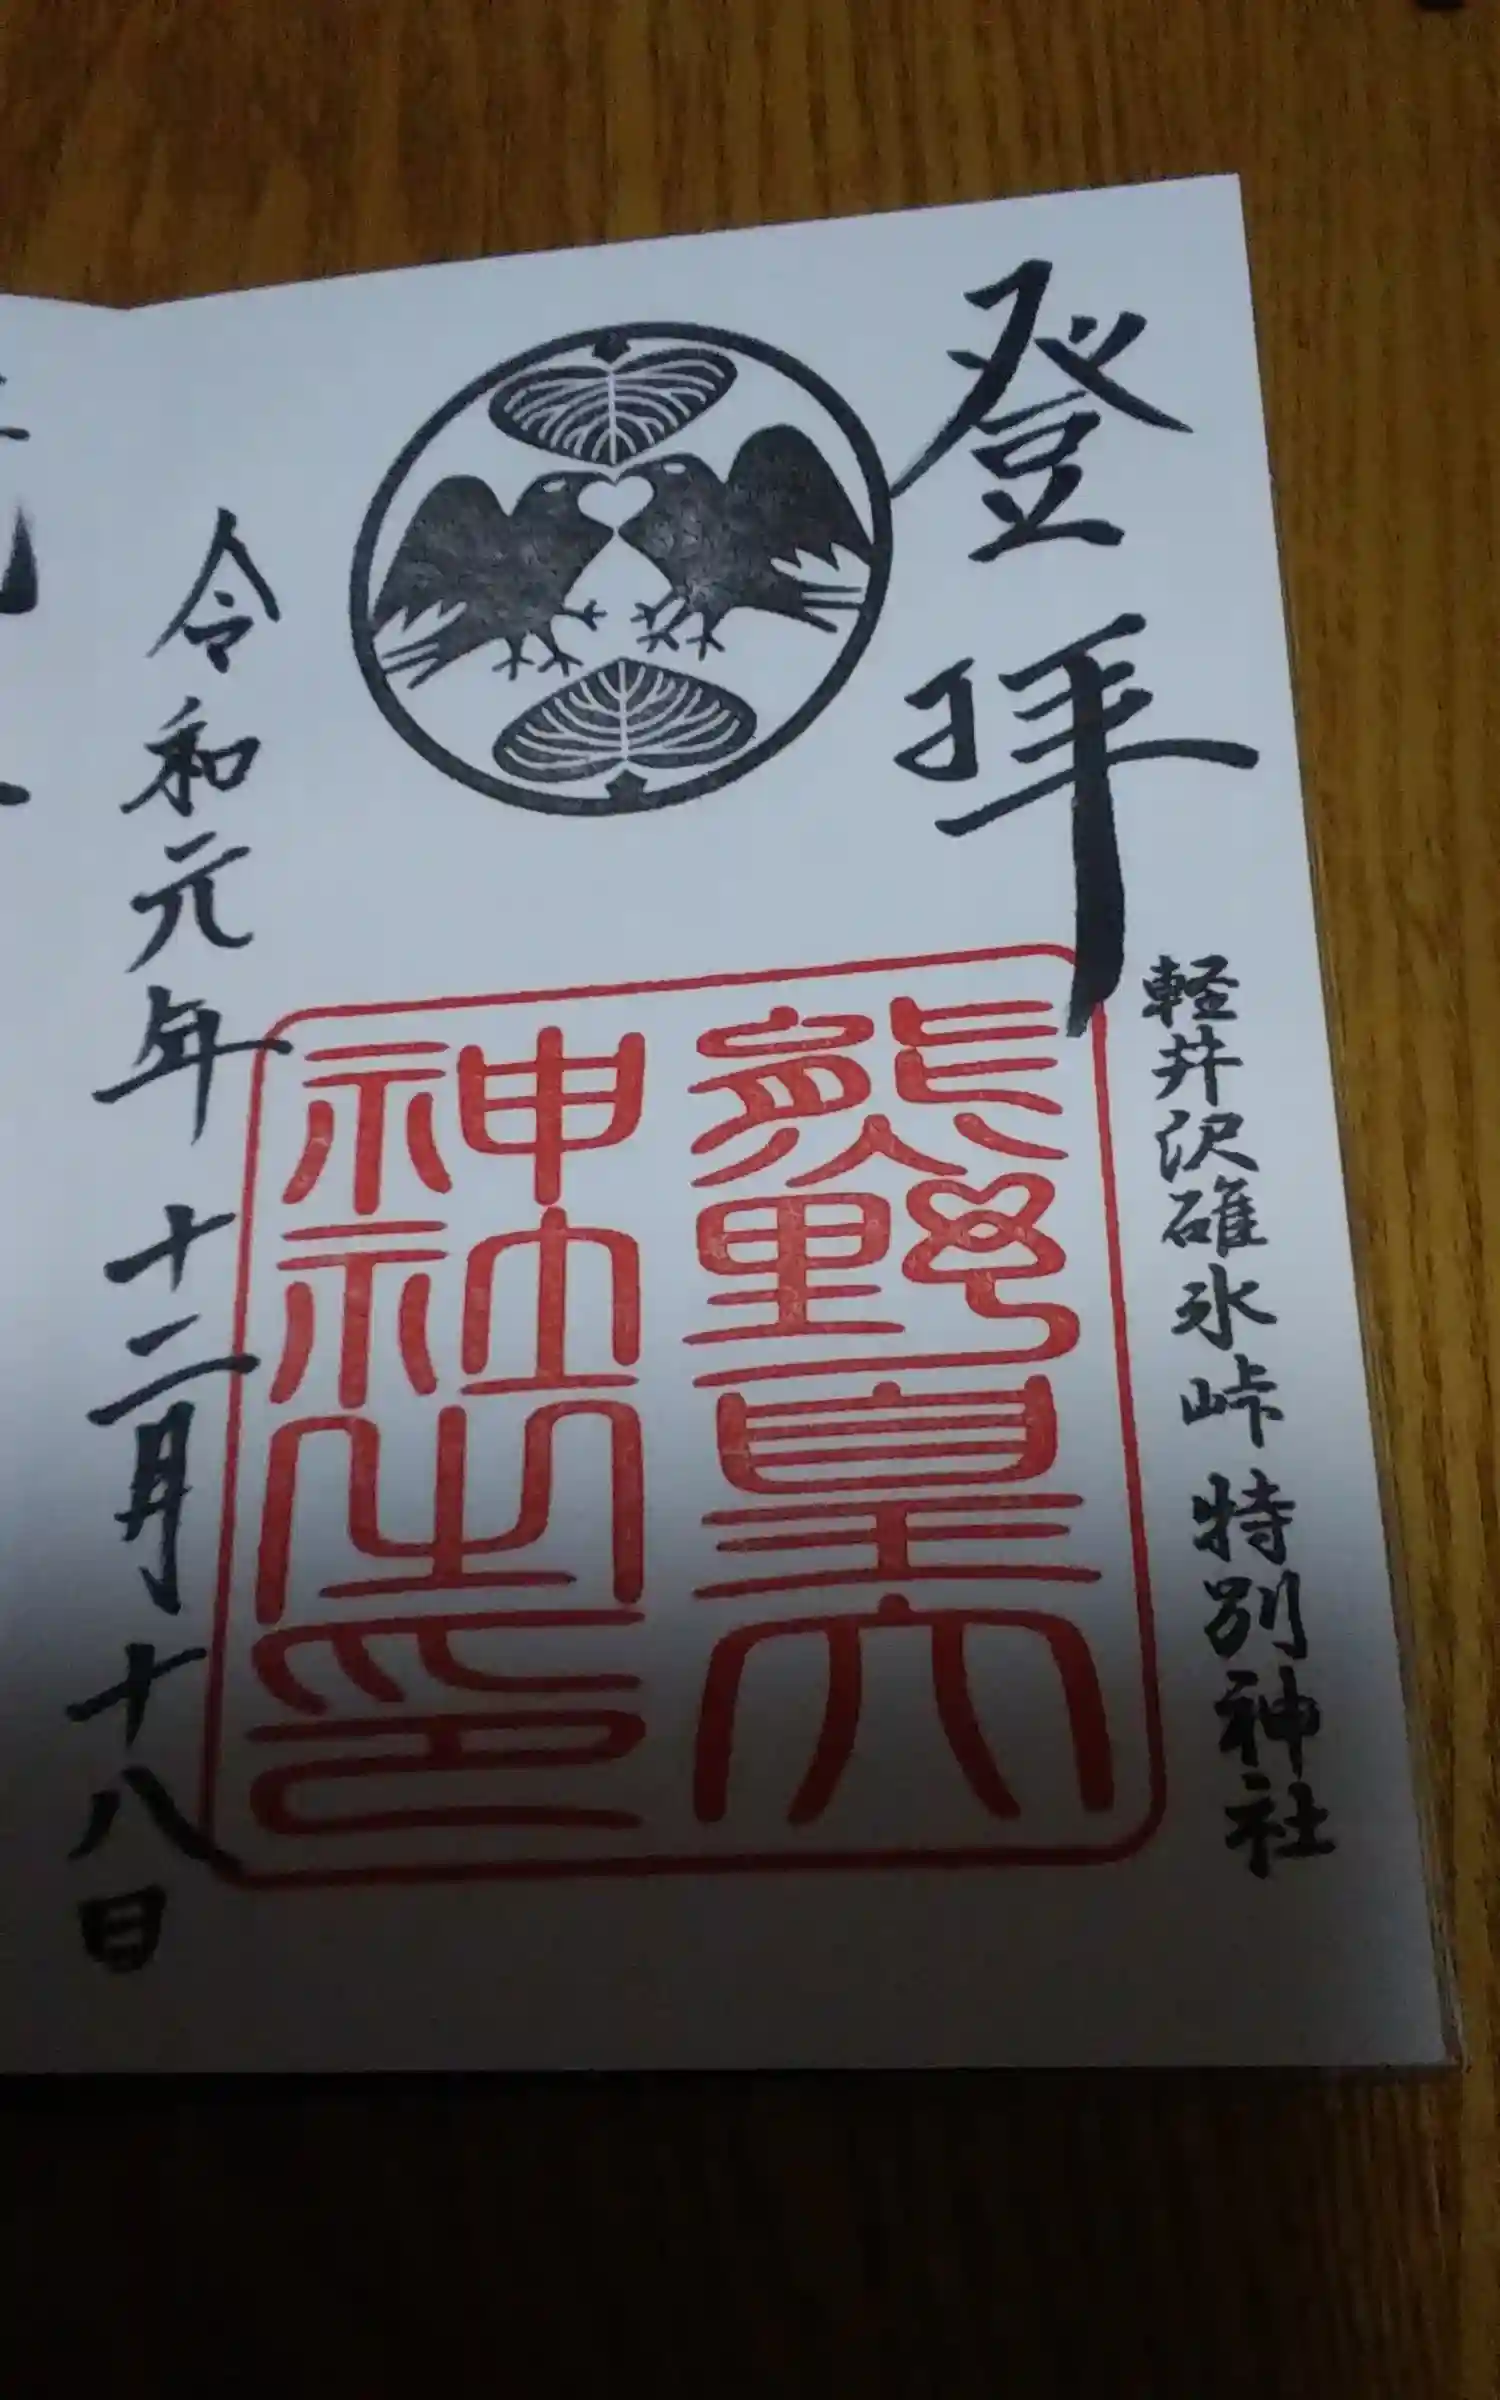 登拝
軽井沢碓氷峠 特別神社
熊野皇大
神社之印
令和元年 十二月 十八日